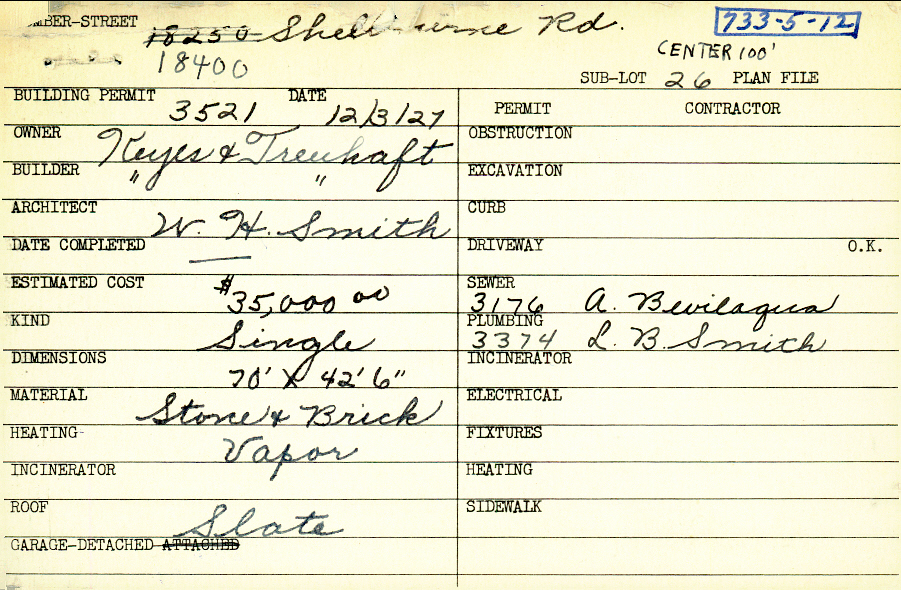 MBER-STREET 18250 Shelburne Rd. 733-5-12
18400 CENTER 100'
SUB-LOT 26 PLAN FILE
BUILDING PERMIT 3521 DATE 12/3/27
PERMIT CONTRACTOR
OWNER Keyes & Treuhaft
OBSTRUCTION
BUILDER " "
EXCAVATION
ARCHITECT W. H. Smith
CURB
DATE COMPLETED —
DRIVEWAY O.K.
ESTIMATED COST $35,000 00
SEWER 3176 A. Bevilaqua
KIND Single
PLUMBING 3374 L. B. Smith
DIMENSIONS 70' X 42' 6"
INCINERATOR
MATERIAL Stone & Brick
ELECTRICAL
HEATING Vapor
FIXTURES
INCINERATOR
HEATING
ROOF Slate
SIDEWALK
GARAGE-DETACHED ATTACHED